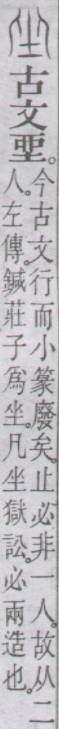 坐古文𡋲。
今古文行而小篆廢矣。止必非一人。故从二
人。左傳。鍼莊子爲坐。凡坐獄訟。必兩造也。